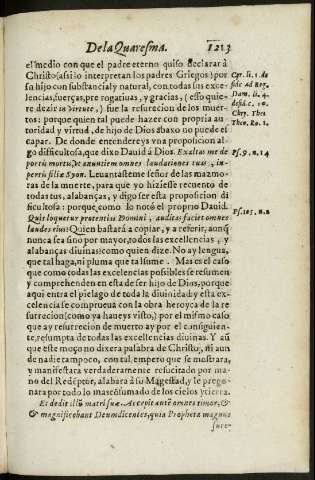 De la Quaresma. 1213
el medio con que el padre eterno quiso declarar â
Christo (assi lo interpretan los padres Griegos) por
su hijo con substancial y natural, con todas sus exce-
lencias, fuerças, prerogatiuas, y gracias, (esso quie-
re dezir in virtute,) fue la resureccion de los muer-
tos: porque quien tal puede hazer con propria au
toridad y virtud, de hijo de Dios abaxo no puede es
capar. De donde entendereys vna proposicion al-
go difficultosa, que dixo Dauid à Dios. Exaltas me de
portis mortis, vt anuntiem omnes laudationes tuas, in
portis filiæ Syon. Leuantasteme señor de las mazmo-
rras de la muerte, para que yo hiziesse recuento de
todas tus, alabanças, y digo ser esta proposicion di
ficultosa: porque como lo notó el proprio Dauid.
Quis loquetur potentias Domini, auditas faciet omnes
laudes eius? Quien bastará a copiar, y a referir, aunq̃
nunca sea sino por mayor, todos las excellencias, y
alabanças diuinas: como quien dize. No ay lengua,
que tal haga, ni pluma que tal sume. Mas es el caso
que como todas las excelencias possibles se resumen
y comprehenden en esta de ser hijo de Dios, porque
aqui entra el pielago de toda la diuinidad; y esta ex-
celencia se comprueua con la obra heroyca de la re
surreccion (como ya haueys visto,) por el mismo caso
que ay resurreccion de muerto ay por el consiguien
te, resumpta de todas las excellencias diuinas. Y aũ
que este moço no dixera palabra de Christo, ni aun
de nadie tampoco, con tal, empero que se mostrara,
y manifestara verdaderamente resucitado por ma
no del Redẽptor, alabara â su Magestad, y le prego
nara por todo lo mas cẽsumado de los cielos y tierra.
Et dedit illũ matri suæ. Accepit autẽ omnes timor, &
& magnificabant Deum dicentes, quia Propheta magnus
surre-
Cyr. li. 1. de
fide ad Reg.
Dam. li. 4.
de fid. c. 10.
Chry. Theo
Theo. Ro. 1.
Ps. 9. n. 14
Ps. 105. n. 2